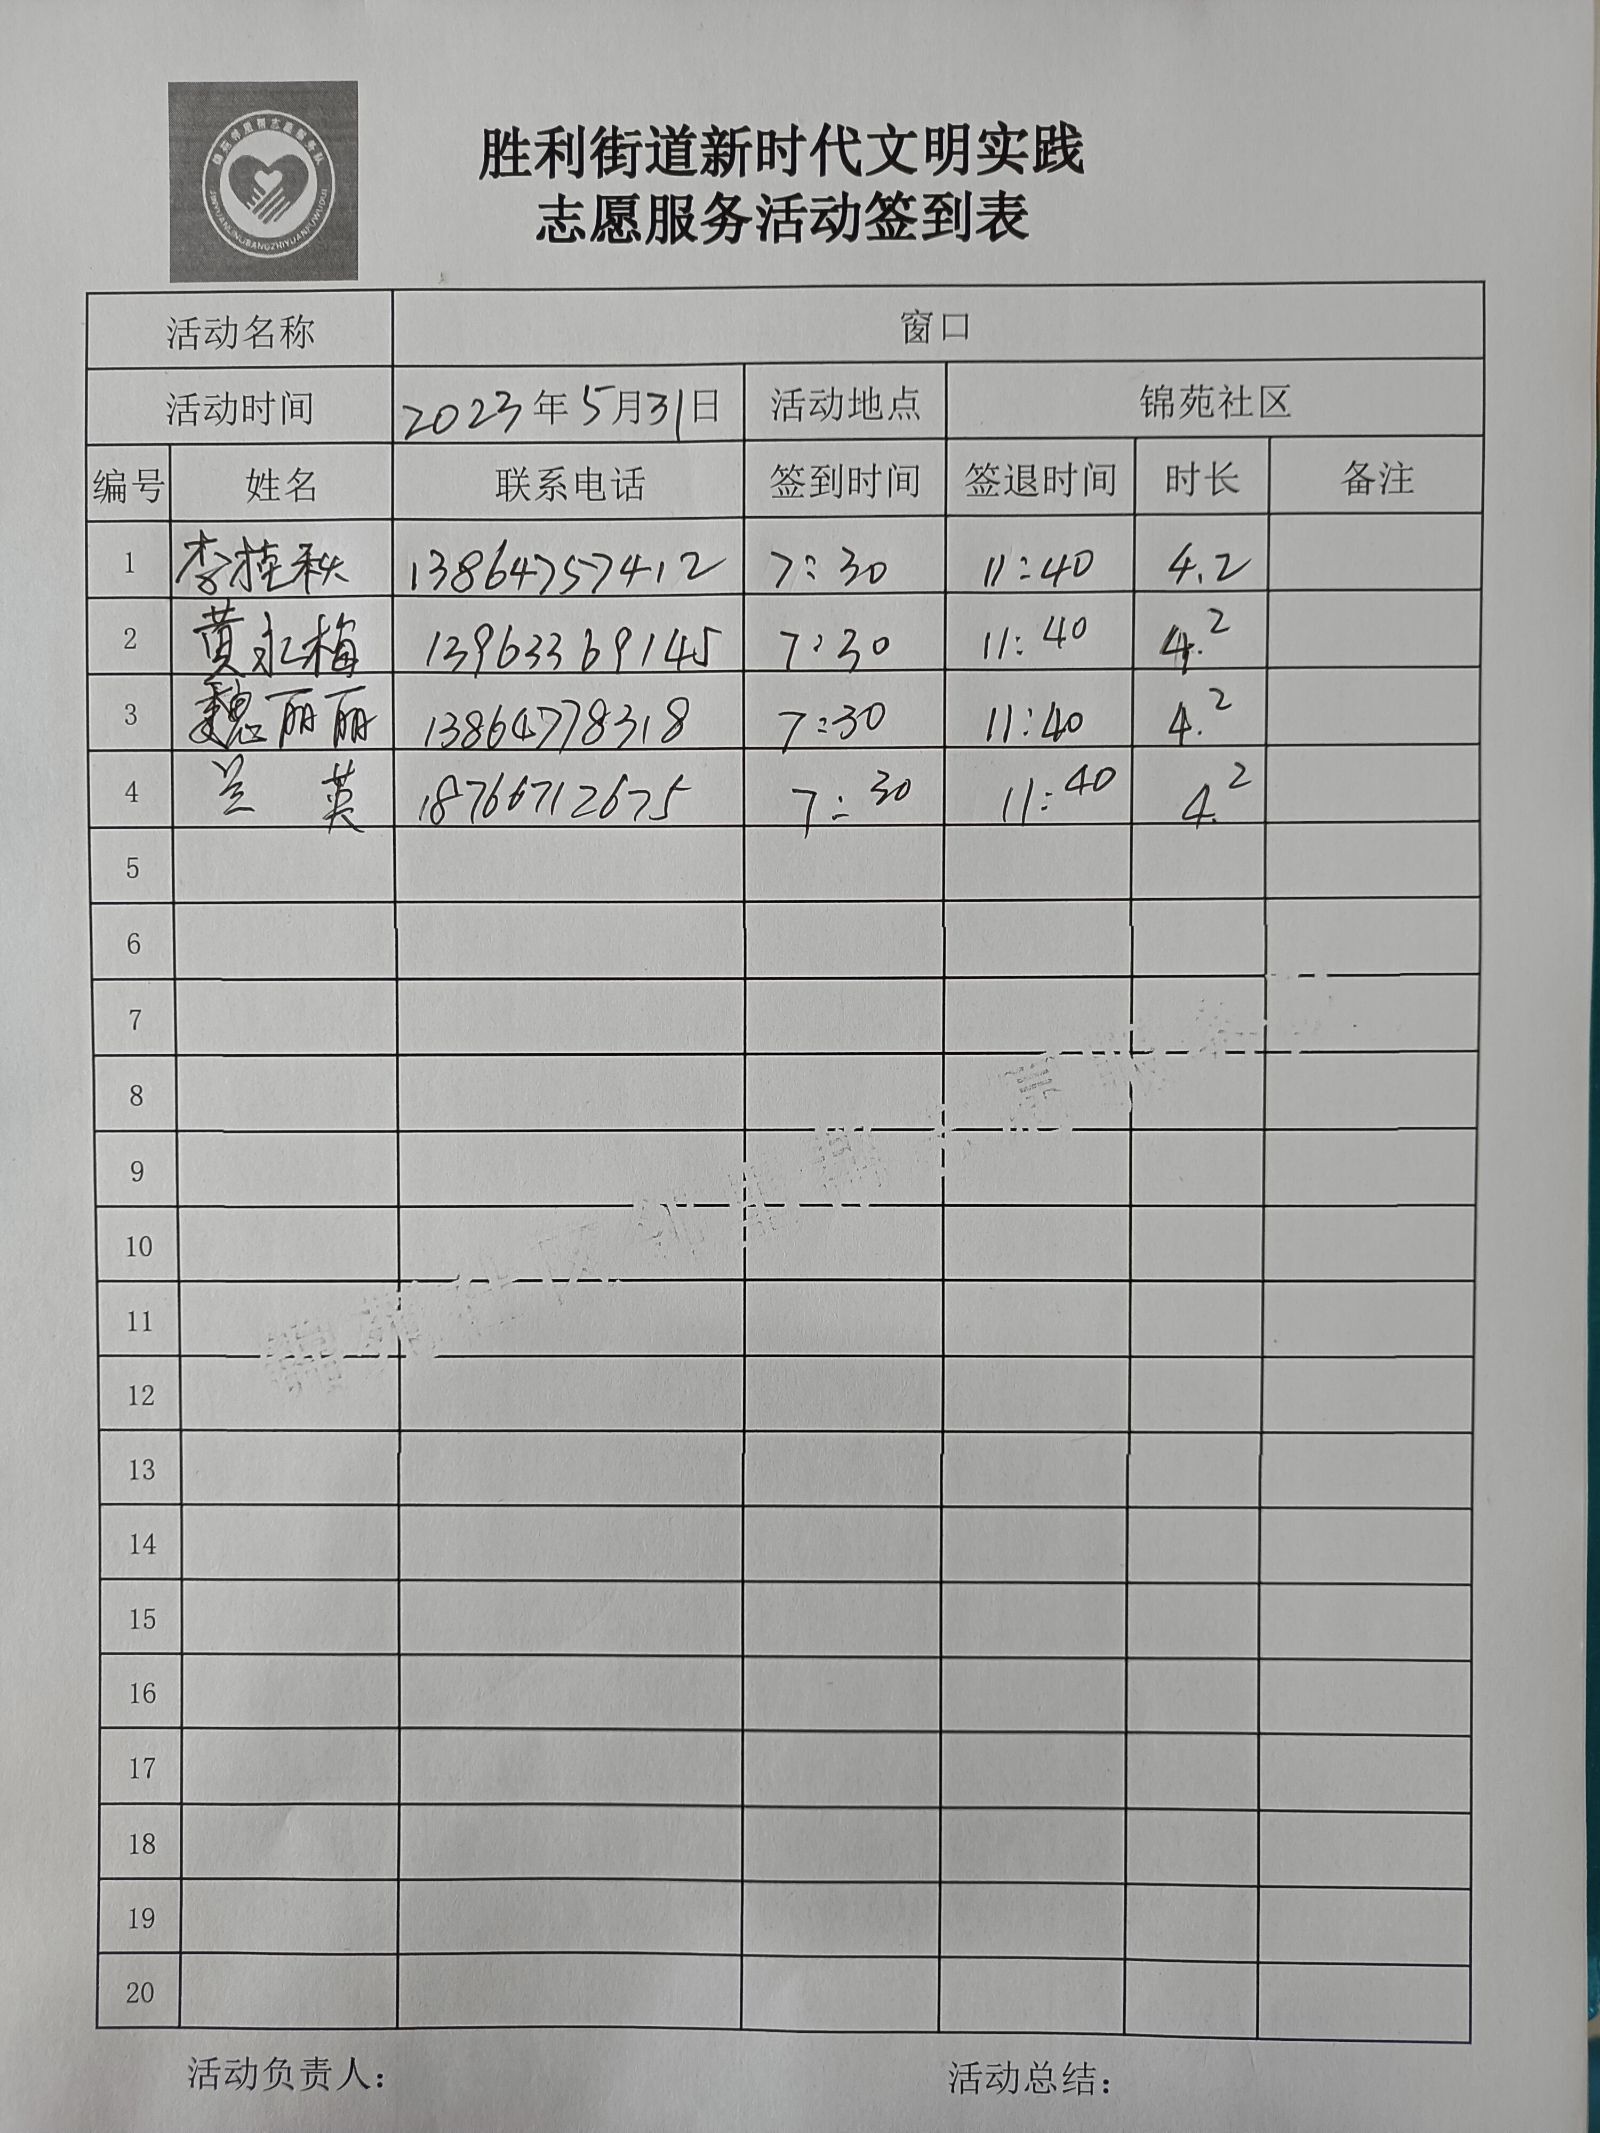 锦苑邻里帮志愿服务队
JINYUANLINLIBANGZHIYUANFUWUDUI
胜利街道新时代文明实践
志愿服务活动签到表
活动名称 窗口
活动时间 2023年5月31日 活动地点 锦苑社区
编号 姓名 联系电话 签到时间 签退时间 时长 备注
1 李桂秋 13864757412 7:30 11:40 4.2
2 黄永梅 13963369145 7:30 11:40 4.2
3 魏丽丽 13864778318 7:30 11:40 4.2
4 兰英 18766712675 7:30 11:40 4.2
5
6
7
8
9
10
11
12
13
14
15
16
17
18
19
20
锦苑社区邻里帮志愿服务
活动负责人：
活动总结：